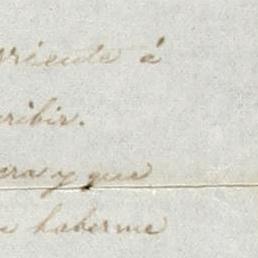 rriente á
cribir.
era y que
haberme